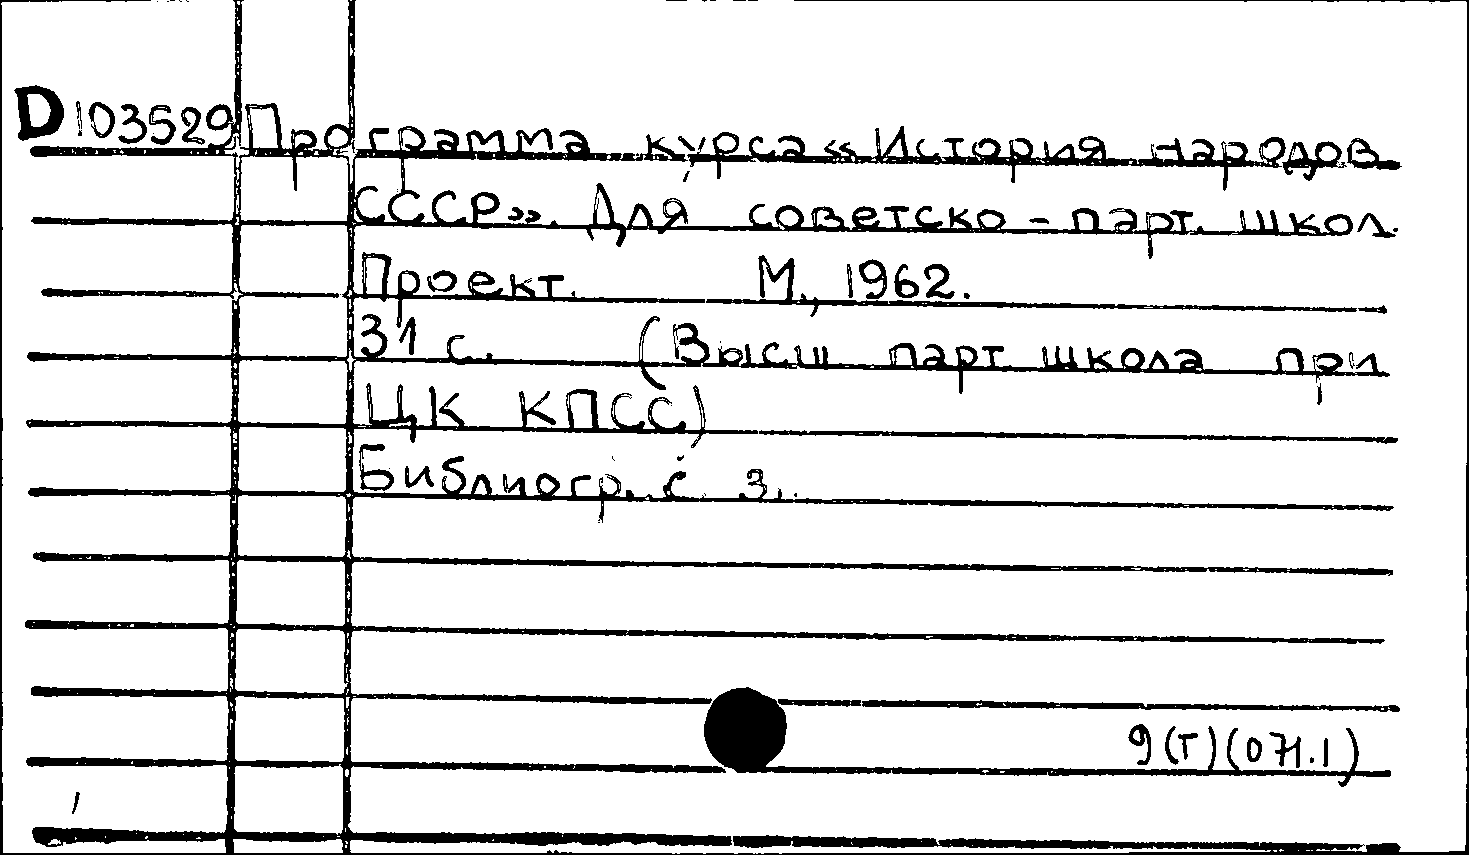 D 103529 Программа курса «История народов
СССР». Для советско-парт. школ.
Проект. М., 1962.
31 с. (Высш парт. школа при
ЦК КПСС)
Библиогр. с. 3.
9(Т)(071.1)